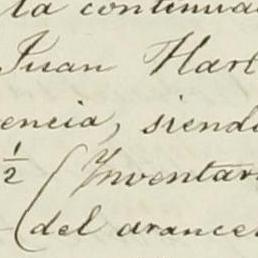 la continua
Juan Hart
encia, siendo
1/2 (Inventar
del arancel